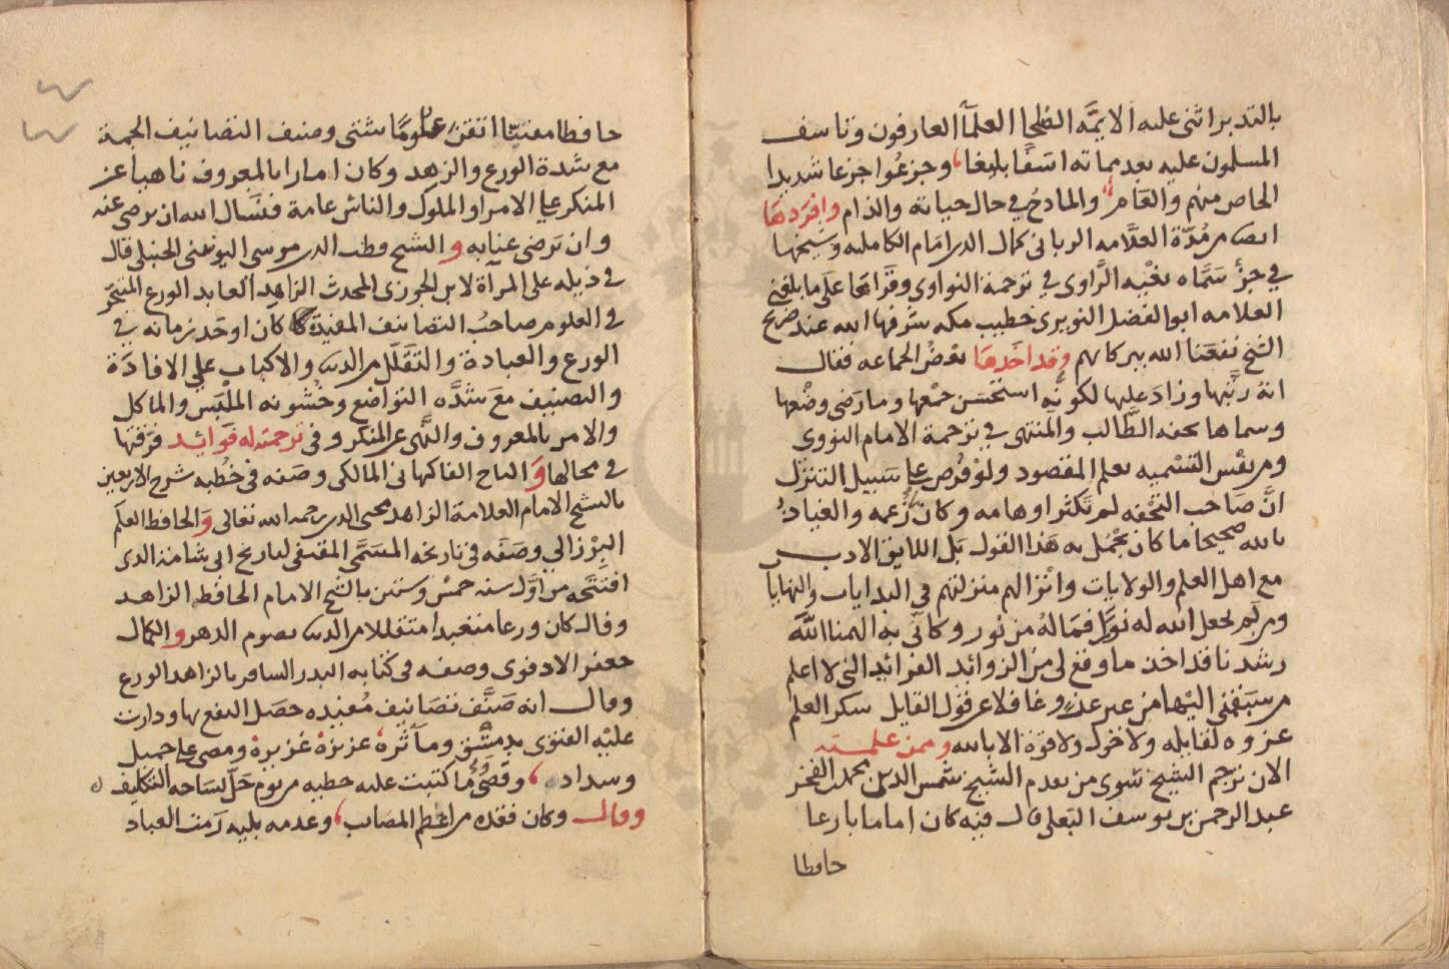 بالتدبر اثنى عليه الايمَّه الصُّلحاا العلمآ العارفون وتاسف
المسلمون عليه بعد مماته اسَفًا بليغا، وجزعُوا جزعا شديدا
الخاص منهُم والعَام، والمادحُ في حال حياته والذام وافرَدهَا
ايضا من مُدّة العلَّامه الربانى كمال الدين امَام الكامليه وشيخها
في جزْء سَمَّاه بغيه الرَّاوى في ترجمة النواوي وقَراهَا عَلَى ما بلغني
العلامه ابو الفضل النويرى خطيب مكه شرفها الله عند ضريح
الشيخ نفعَنا الله ببركاتهم وقد اخَدهَا بعضُ الجماعه فقال
انهُ رتَّبها وزادَ عليها لكونُه استحسَن جمْعها وما رَضى وضْعها
وسماها تحفه الطَّالب والمنتهى في ترجمة الامام النووى
ومن نفْس التسْميه يعلم المقصود ولوْ فُرِض على سَبيل التنزّل
انَّ صَاحب التحفه لم تكثر اوهامه وكان زُعمه والعياذُ
بالله صحيحا ما كان يجْمُل به هَذا القول بَل اللايق الادب
مع اهل العلم والولايات وانْزالهم منزلتهُم في البدايات والنهايا
ومن لَم يجعل الله له نورًا فمَالهُ من نور وكاَنّي به الهمنا اللَّه
رشدنا قد اخذ ما وقع لى من الزوائد الفرائد التى لا اعلم
من سَبقنى اليْها من غير عزوٍ وغافلا عن قول القايل شكر العلم
عزوه لقايله ولا حَول ولا قوّة الا بالله وممن علمته
الان ترجم الشيخ سوى من تقدم الشيخ شمس الدين محمد بن الفخر
عبد الرحمن بن يوسف البَعلى قال فيه كان اماما بارعا
حافظا
حافظا مفتيًّا اتقن علومًا شتى وصنف التصانيف الجمة
مع شدة الورع والزهد وكان امارا بالمعروف ناهيا عن
المنكر على الامراو الملوك والناس عامة فنسَال الله ان يرضى عنه
وان يَرضى عنا به و الشيخ قطب الدين موسى اليونيني الحنبلى قال
فى ذيله على المرآة لابن الجوزى المحدث الزاهد العابد الورع المتبحّر
فى العلوم صاحبُ التصانيف المفيدة كان اوحَد زمانه في
الورع والعبادة والتقَلّل من الدنيا والاكباب على الافادَة
والتصنيف معَ شدَّه التواضع وخشُونه الملْبَس والماكل
والامر بالمعروف والنَّهى عن المنكر وفى ترجمته له فوائد فرّقتها
فى محالها وَ التاج الفاكهانى المالكى وصَفه فى خُطبه شرح الاربعين
بالشيخ الامام العلامة الزاهد محيى الدين رحمه الله تعالى وَ الحافظ العلَم
البِرْزالى وصَفَه فى تاريخه المسَمَّى المقتفى لتاريخ ابى شامة الذى
افتتحَه من اوَّل سنه خمسْ وستين بالشيخ الامام الحافظ الزاهد
وقال كان ورعا متعبدا متقللا من الدنيا يصوم الدهر و الكمال
جعفر الادفوى وصفه فى كتابه البدر السافر بالزاهد الورع
وقال انه صَنَّف تصَانيف مُفيده حصَل النفع بها ودارت
عليْه الفتوى بدمشْق ومآثرهُ عزيزهْ غزيرهْ ومضى على جميل
وسداد، وقضى وَما كتبت عليه خطيه من يوم حَلّ بسَاحه التكليف ه
وقال وكان فقده من اعظم المصَايب، وعدمه بليه رَمت العباد